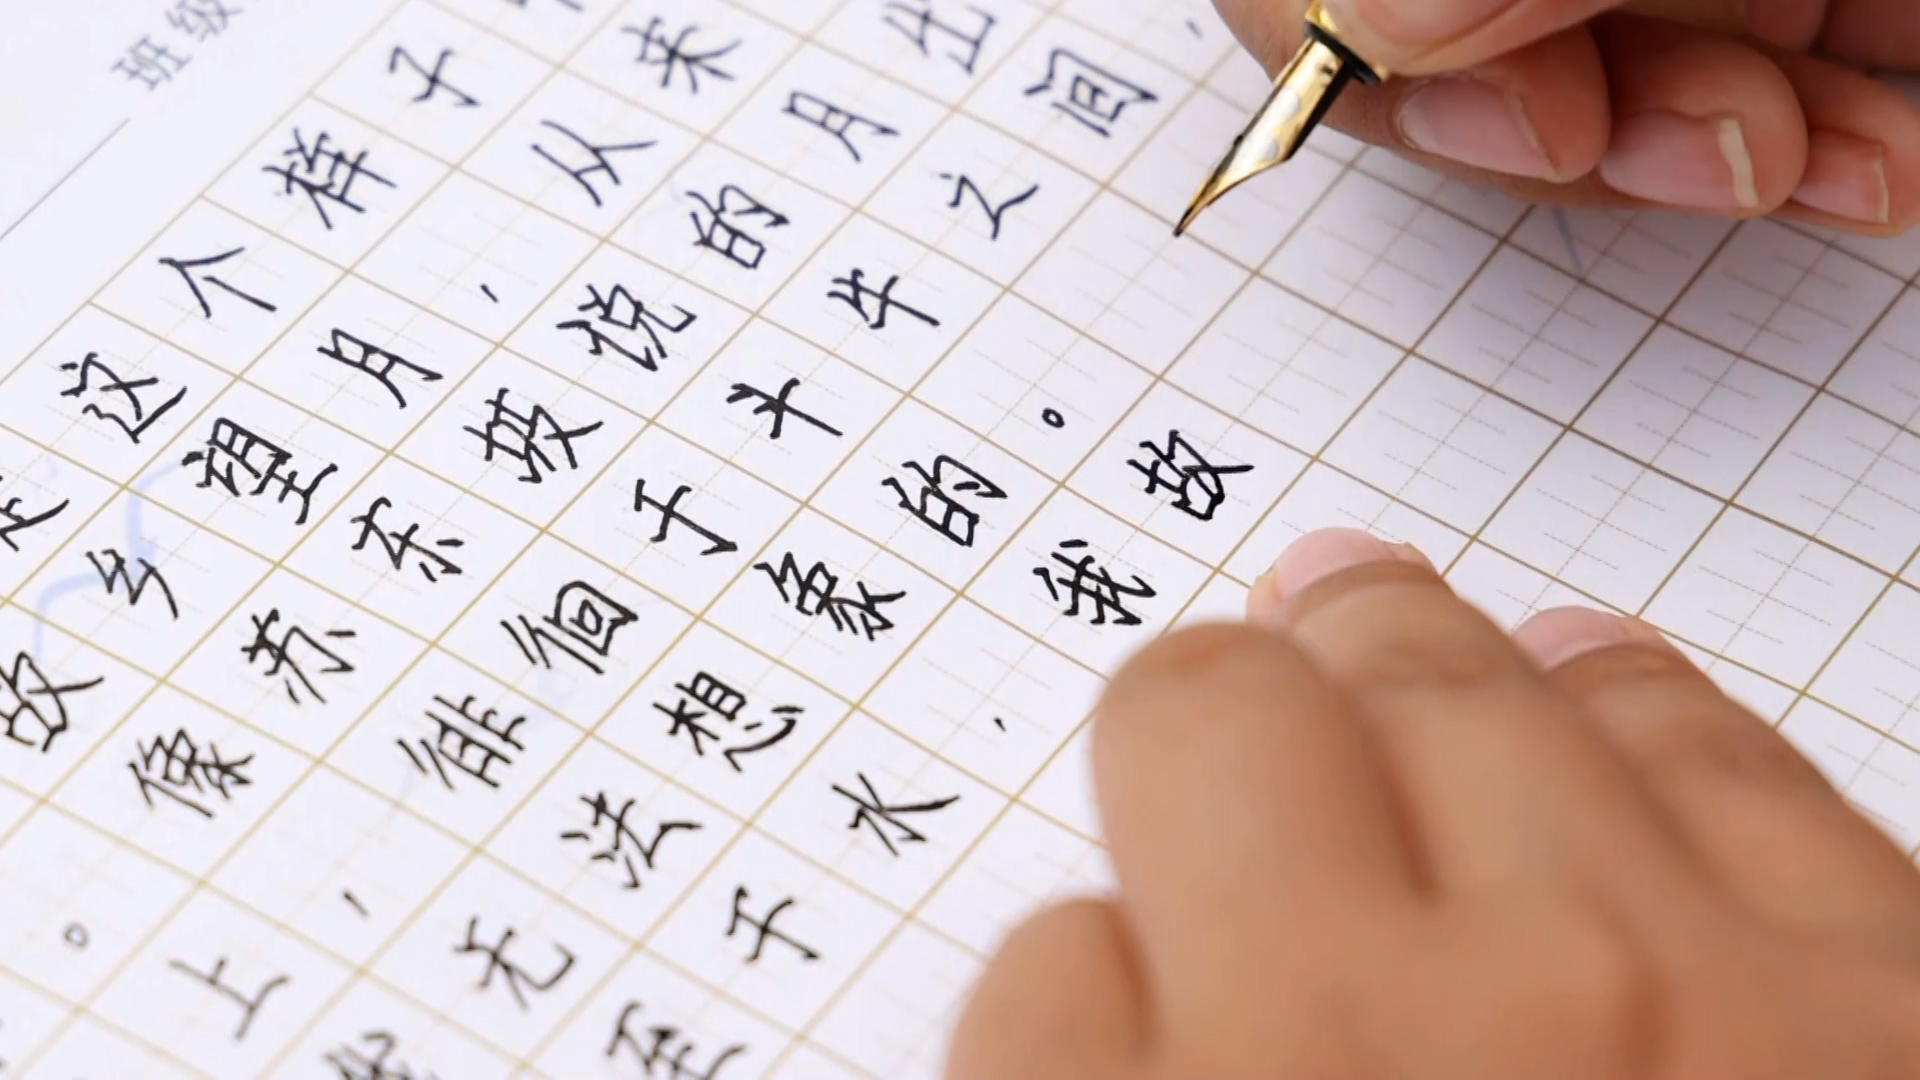 班级
这个样子
故乡望月，从来
。像苏东坡说的月出
上，徘徊于斗牛之间，
无法想象的。
至于水，我故